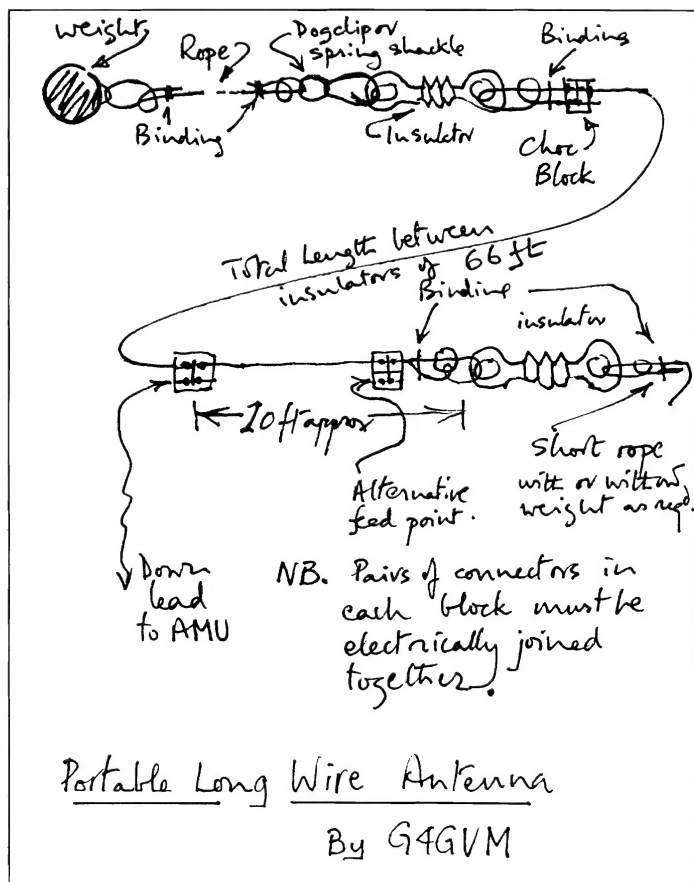 weight
Rope
Dogclip or
spring shackle
Binding
Binding
Insulator
Choc
Block
Total Length between
insulators of 66 ft
Binding
insulator
10 ft approx
Alternative
feed point.
Short rope
with or without
weight as reqd.
Down
lead
to AMU
NB. Pairs of connectors in
each block must be
electrically joined
together.
Portable Long Wire Antenna
By G4GVM